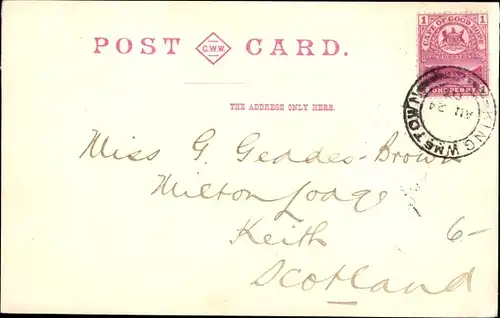 POST G.W.W. CARD.
1 CAPE OF GOOD HOPE 1
ONE PENNY
THE ADDRESS ONLY HERE.
KING WMSTOWN
AU 24
Miss G. Geddes-Brown
Milton Lodge
Keith
6-
Scotland